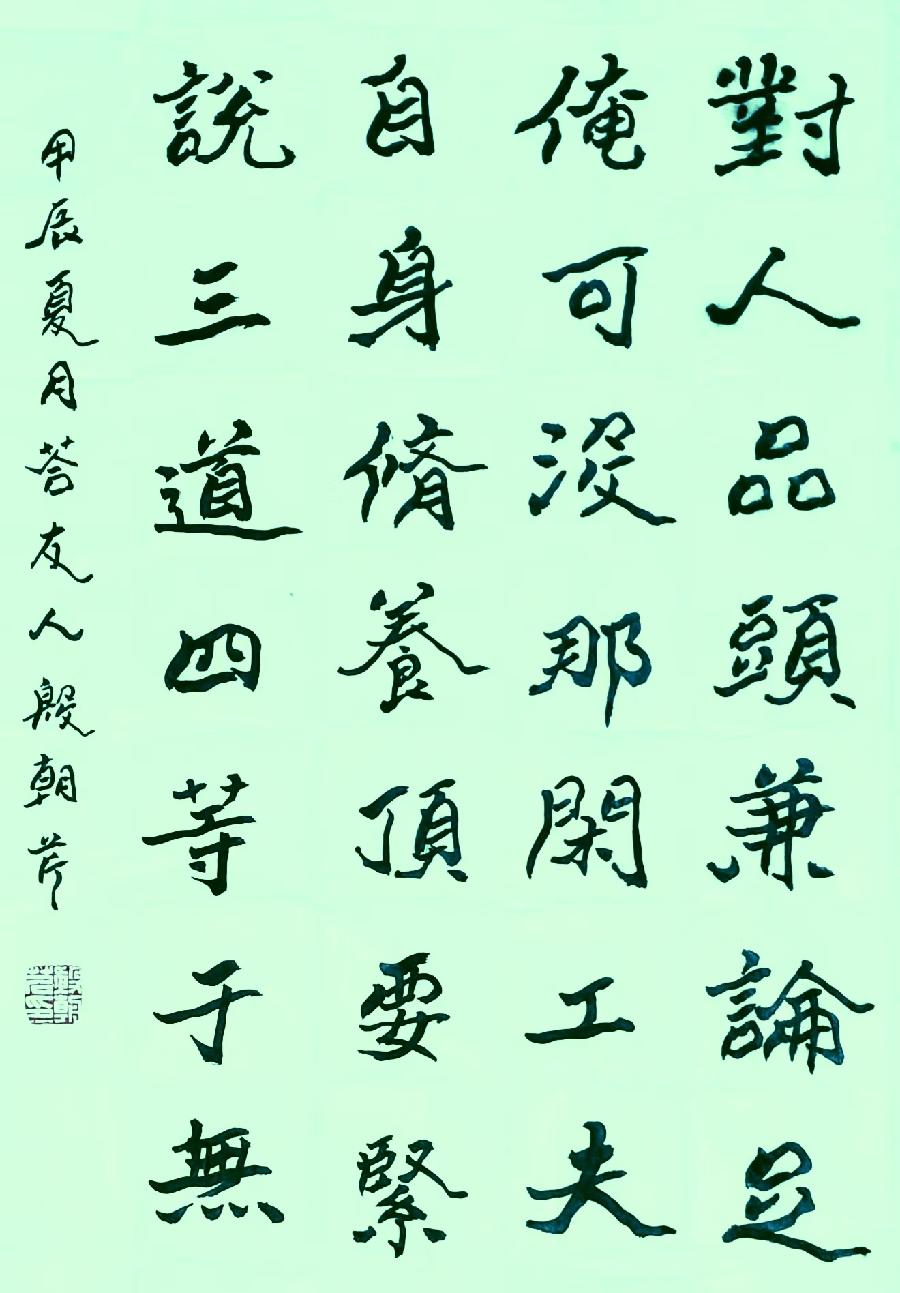 對人品頭兼論足
俺可沒那閑工夫
自身脩養頂要緊
說三道四等于無
甲辰夏月荅友人殷朝芹